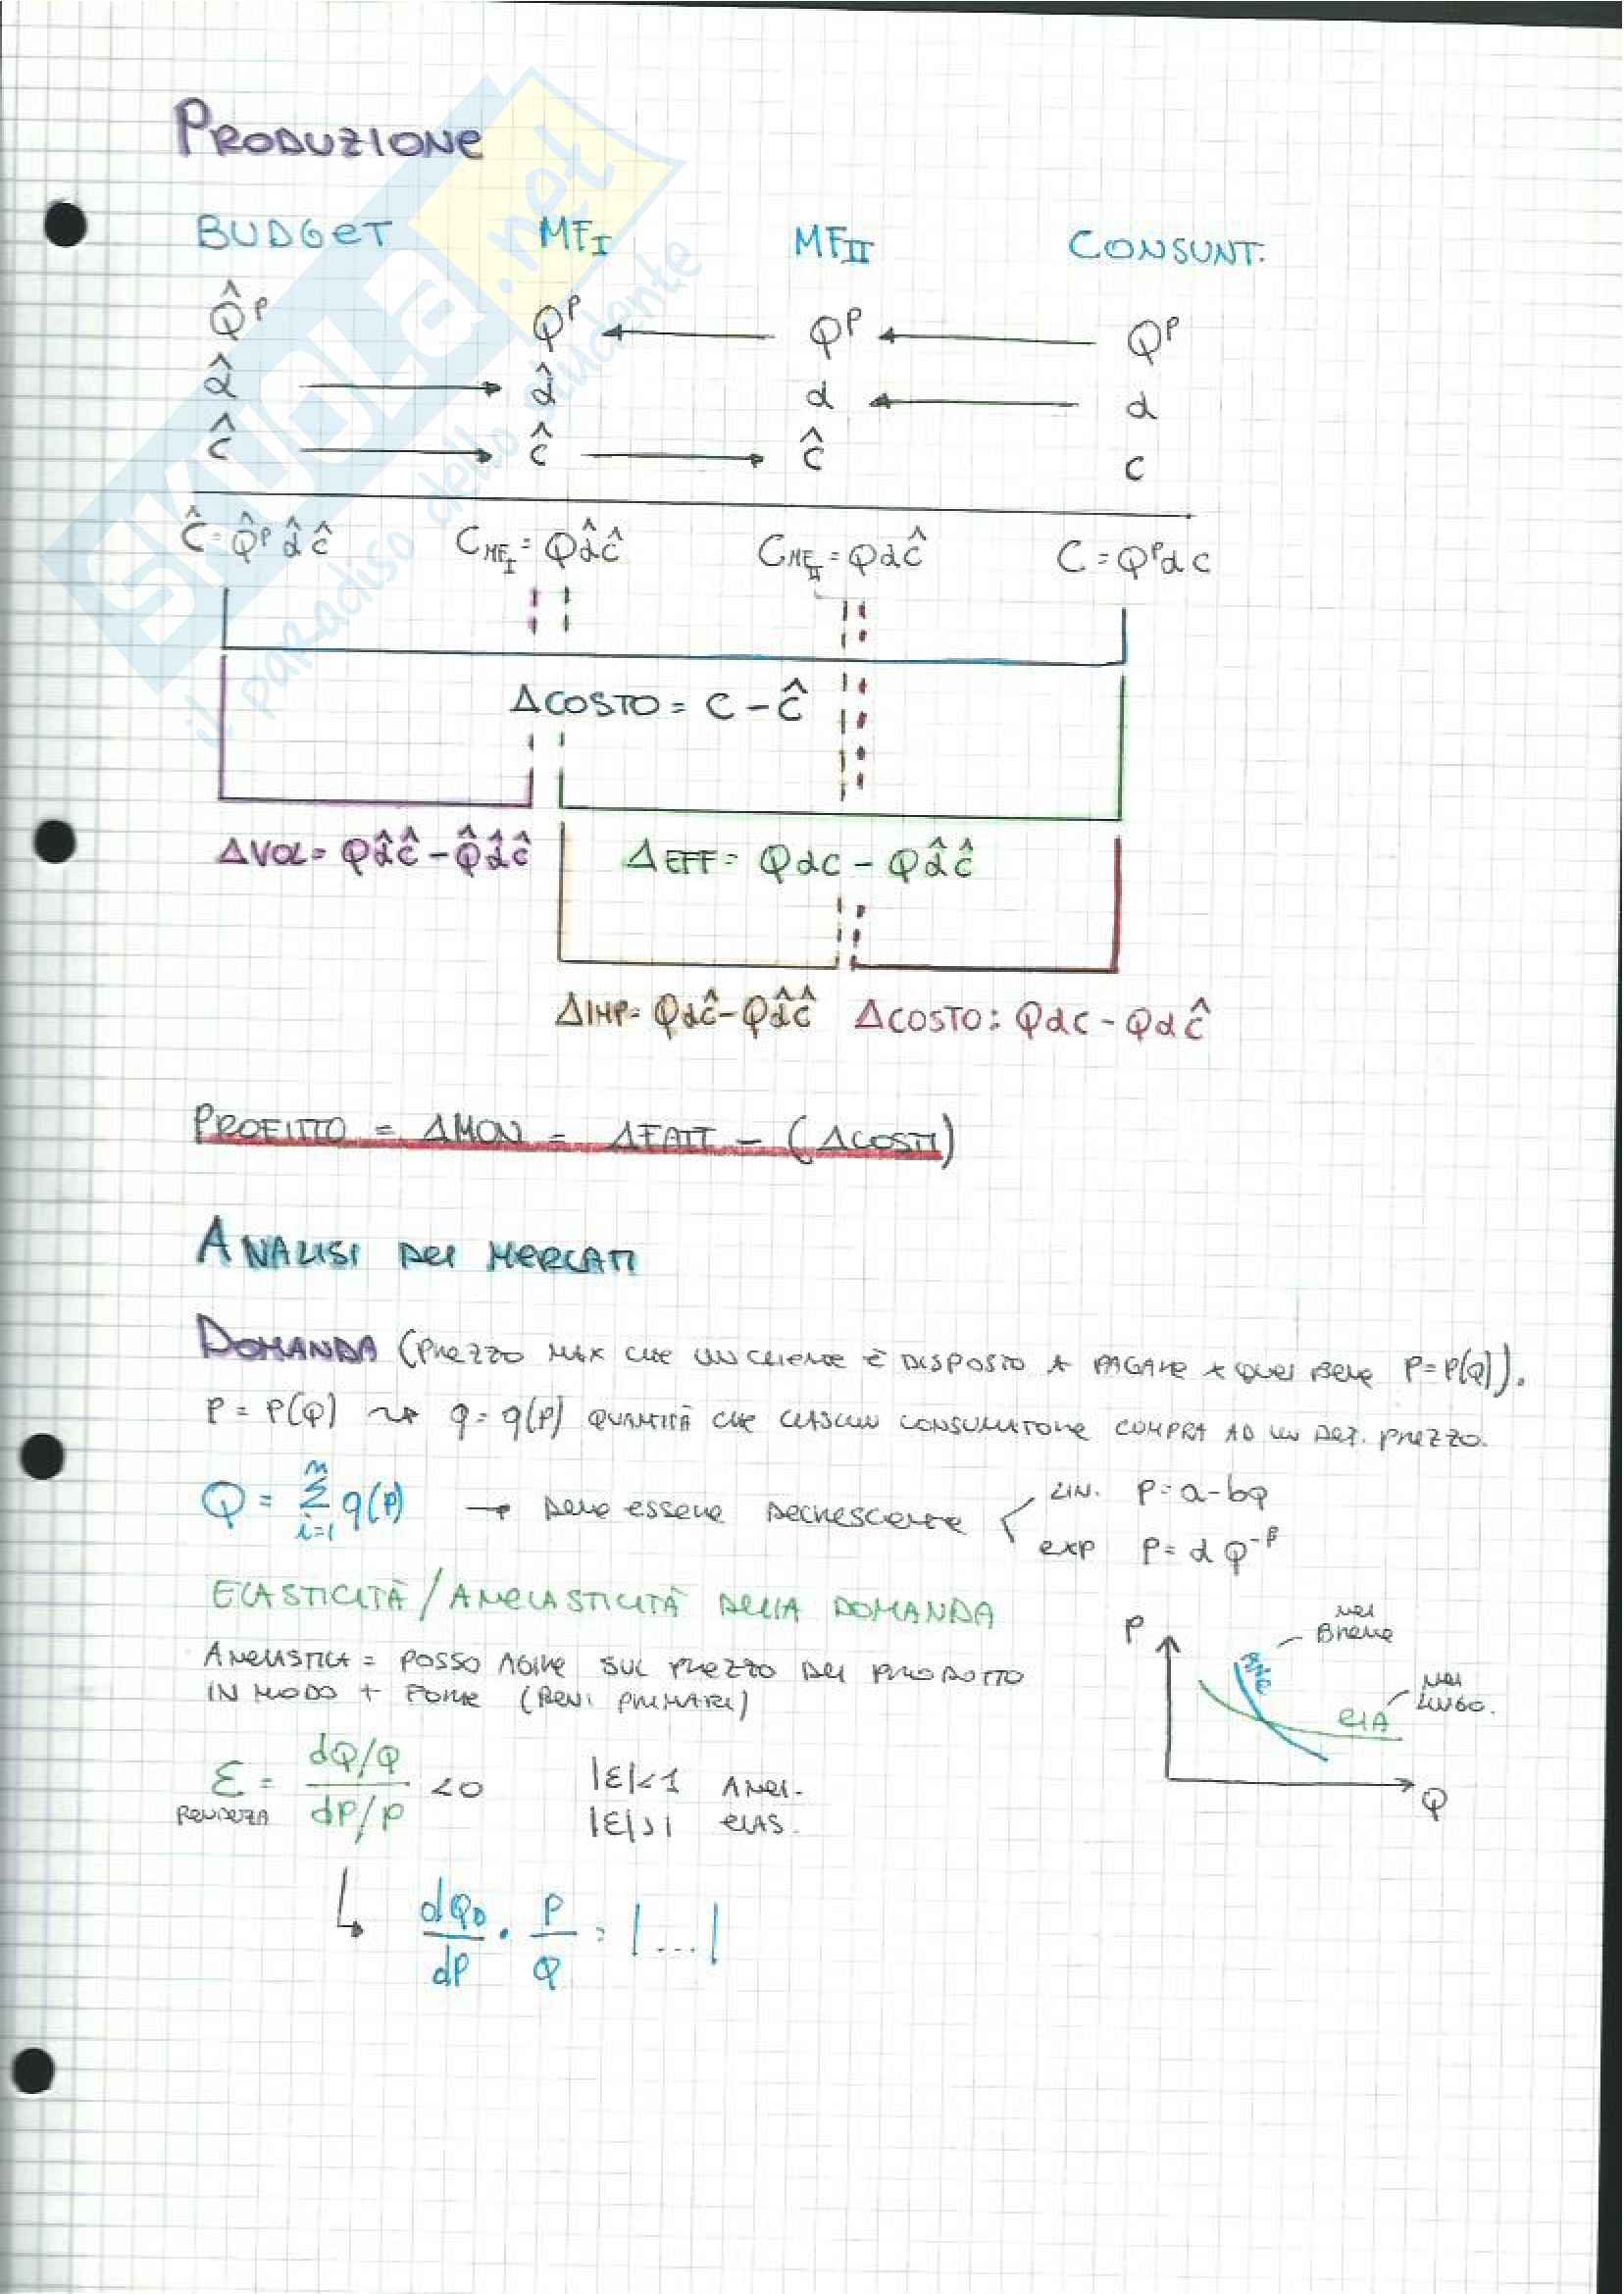 PRODUZIONE
BUDGET MFI MFII CONSUNT.
Q̂ᴾ Qᴾ ← Qᴾ ← Qᴾ
α̂ → α̂ α ← α
ĉ → ĉ → ĉ c
Ĉ = Q̂ᴾ α̂ ĉ C_MFI = Qα̂ĉ C_MFII = Qαĉ C = Qᴾαc
ΔCOSTO = C - Ĉ
ΔVOL = Qα̂ĉ - Q̂α̂ĉ ΔEFF = Qαc - Qα̂ĉ
ΔIMP = Qαĉ - Qα̂ĉ ΔCOSTO: Qαc - Qαĉ
PROFITTO = ΔMON = ΔFATT - (ΔCOSTI)
ANALISI DEI MERCATI
DOMANDA (PREZZO MAX CHE UN CLIENTE È DISPOSTO A PAGARE x QUEL BENE P=P(Q)).
P = P(Q) ⇝ q = q(P) QUANTITÀ CHE CIASCUN CONSUMATORE COMPRA AD UN DET. PREZZO.
Q = Σ_{i=1}^{n} q(P) → DEVE ESSERE DECRESCENTE
LIN. P = a - bQ
EXP P = αQ^-β
ELASTICITÀ / ANELASTICITÀ DELLA DOMANDA
ANELASTICA = POSSO AGIRE SUL PREZZO DEL PRODOTTO
IN MODO + FORTE (BENI PRIMARI)
P
NEL
BREVE
ANE
ELA
NEL
LUNGO.
Q
ε = dQ/Q / dP/P <0 |ε|<1 ANEL.
PENDENZA |ε|>1 ELAS.
↳ dQ_D/dP · P/Q = |...|
SKUOLA.net
il paradiso dello studente